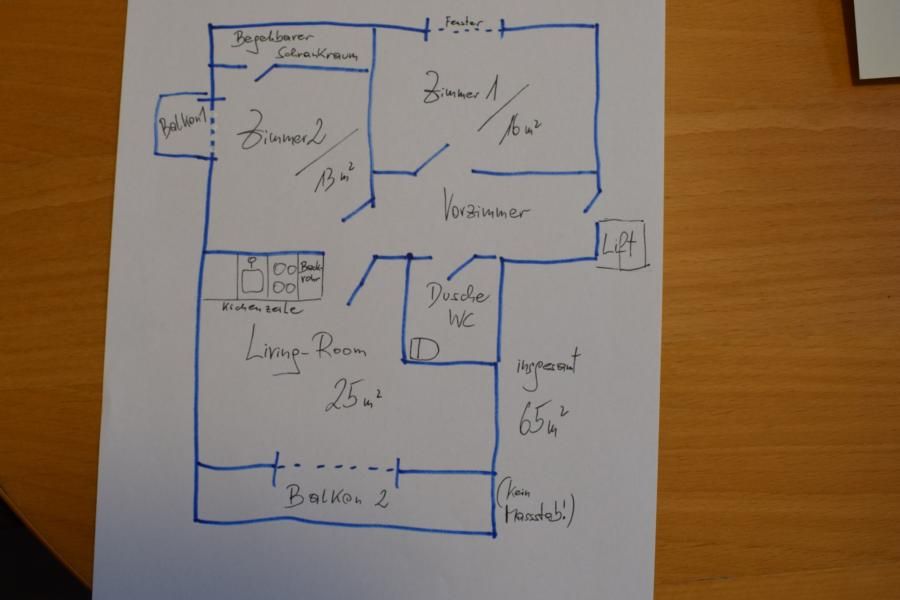 Begehbarer
Schrankraum
Fenster
Balkon 1
Zimmer 2
13 m²
Zimmer 1
16 m²
Vorzimmer
Lift
Backrohr
Küchenzeile
Dusche
WC
Living-Room
25 m²
insgesamt
65 m²
Balkon 2
(Kein
Massstab!)